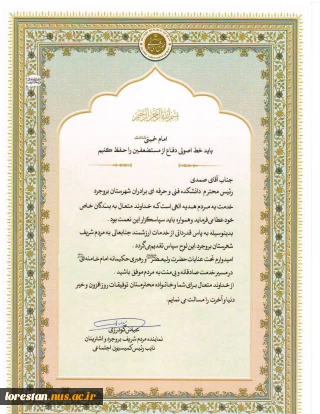 بسم الله الرحمن الرحیم
امام خمینی
باید خط اصولی دفاع از مستضعفین را حفظ کنیم
جناب آقای صمدی
رئیس محترم دانشکده فنی و حرفه ای برادران شهرستان بروجرد
خدمت به مردم هدیه الهی است که خداوند متعال به بندگان خاص
خود عطا می فرماید و همواره باید سپاسگزار این نعمت بود.
بدینوسیله به پاس قدردانی از خدمات ارزشمند جنابعالی به مردم شریف
شهرستان بروجرد، این لوح سپاس تقدیم می گردد.
امیدوارم تحت عنایات حضرت ولیعصر و رهبری حکیمانه امام خامنه ای
در مسیر خدمت صادقانه و بی منت به مردم موفق باشید.
از خداوند متعال برای شما و خانواده محترمتان توفیقات روزافزون و خیر
دنیا و آخرت را مسالت می نمایم.
عباس گودرزی
نماینده مردم شریف بروجرد و اشترینان
نایب رئیس کمیسیون اجتماعی
lorestan.nus.ac.ir